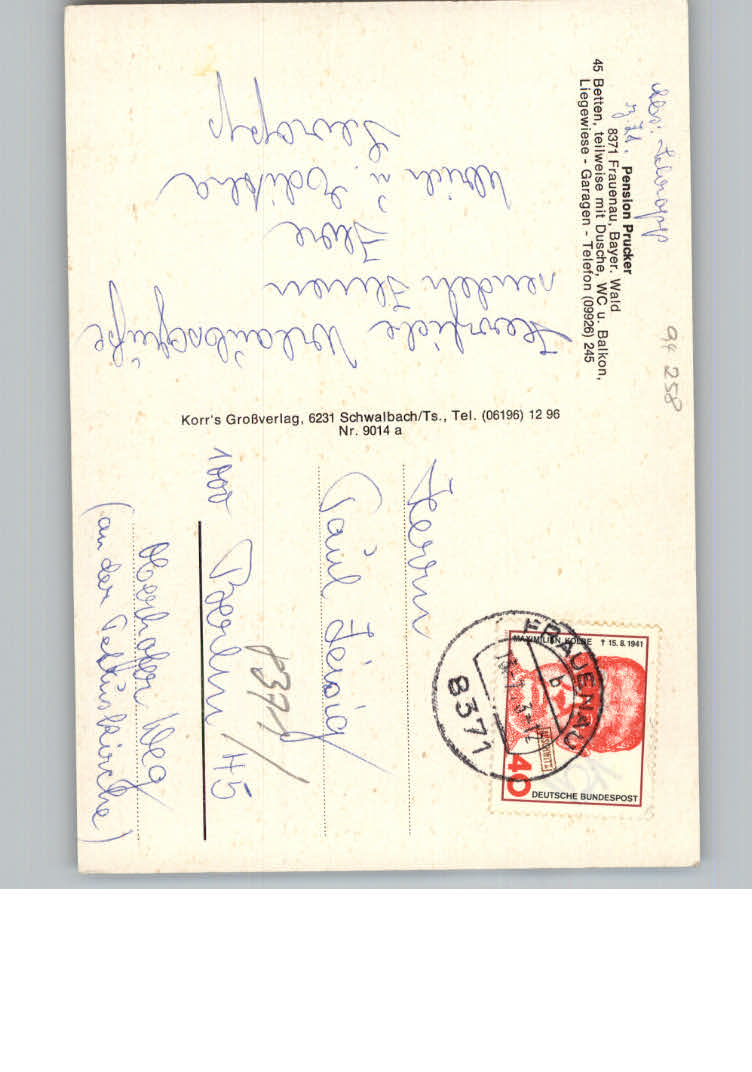 Abs:
z. Zt. Pension Prucker
8371 Frauenau, Bayer. Wald
45 Betten, teilweise mit Dusche, WC u. Balkon,
Liegewiese - Garagen - Telefon (09926) 245
94 258
Herzliche Urlaubsgrüße
senden Ihnen
Ihre
Ulrich u.
Korr's Großverlag, 6231 Schwalbach/Ts., Tel. (06196) 12 96
Nr. 9014 a
MAXIMILIAN KOLBE † 15.8.1941
40
DEUTSCHE BUNDESPOST
FRAUENAU
b
8371
Herrn
Paul
1000 Berlin 45
8371
Weg
(an der Petruskirche)